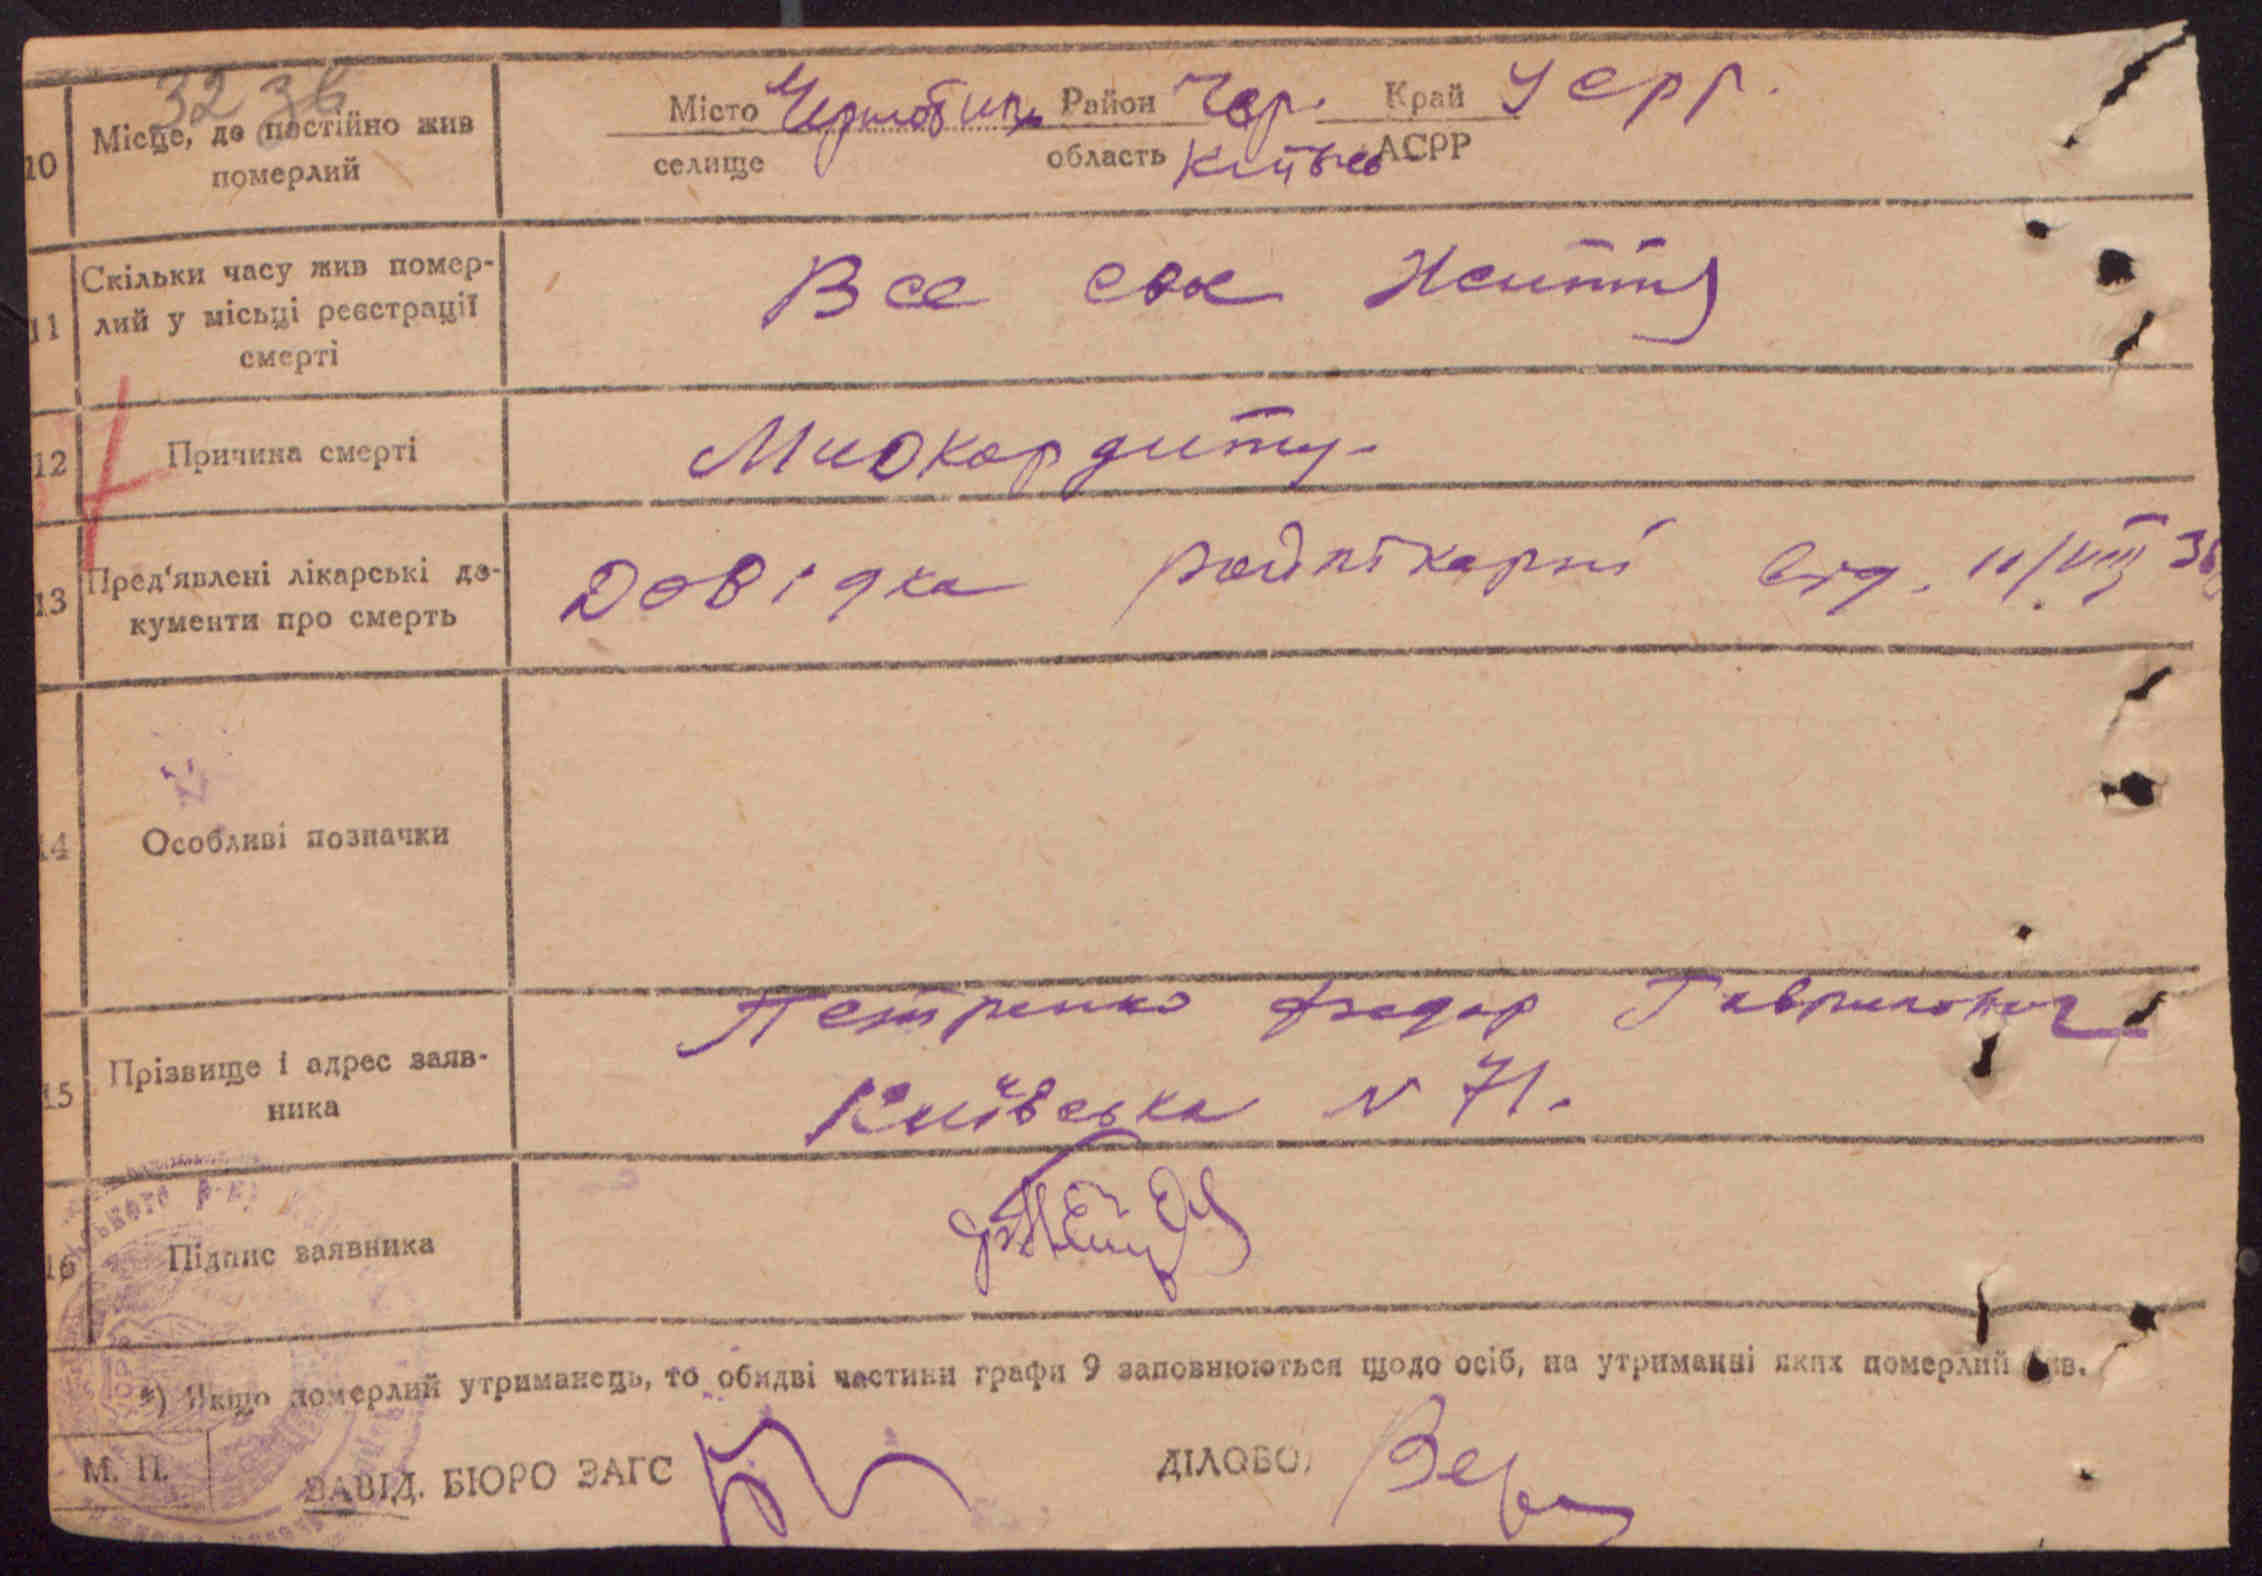 32 36
10 Місце, де постійно жив померлий
Місто Чернобиль Район Чор. Край УСРР.
селище область Київськ АСРР
11 Скільки часу жив помер-
лий у місьці реєстрації
смерті
Все своє життя
12 Причина смерті
Миокардиту.
13 Пред'явлені лікарські до-
кументи про смерть
Довідка райлікарні від. 11/VIII 36
14 Особливі позначки
15 Прізвище і адрес заяв-
ника
Петренко Федор Гаврилович
Київська N 71.
16 Підпис заявника
*) Якщо померлий утриманець, то обидві частини графи 9 заповнюються щодо осіб, на утриманні яких померлий був.
М. П.
ЗАВІД. БЮРО ЗАГС
ДІЛОВОД